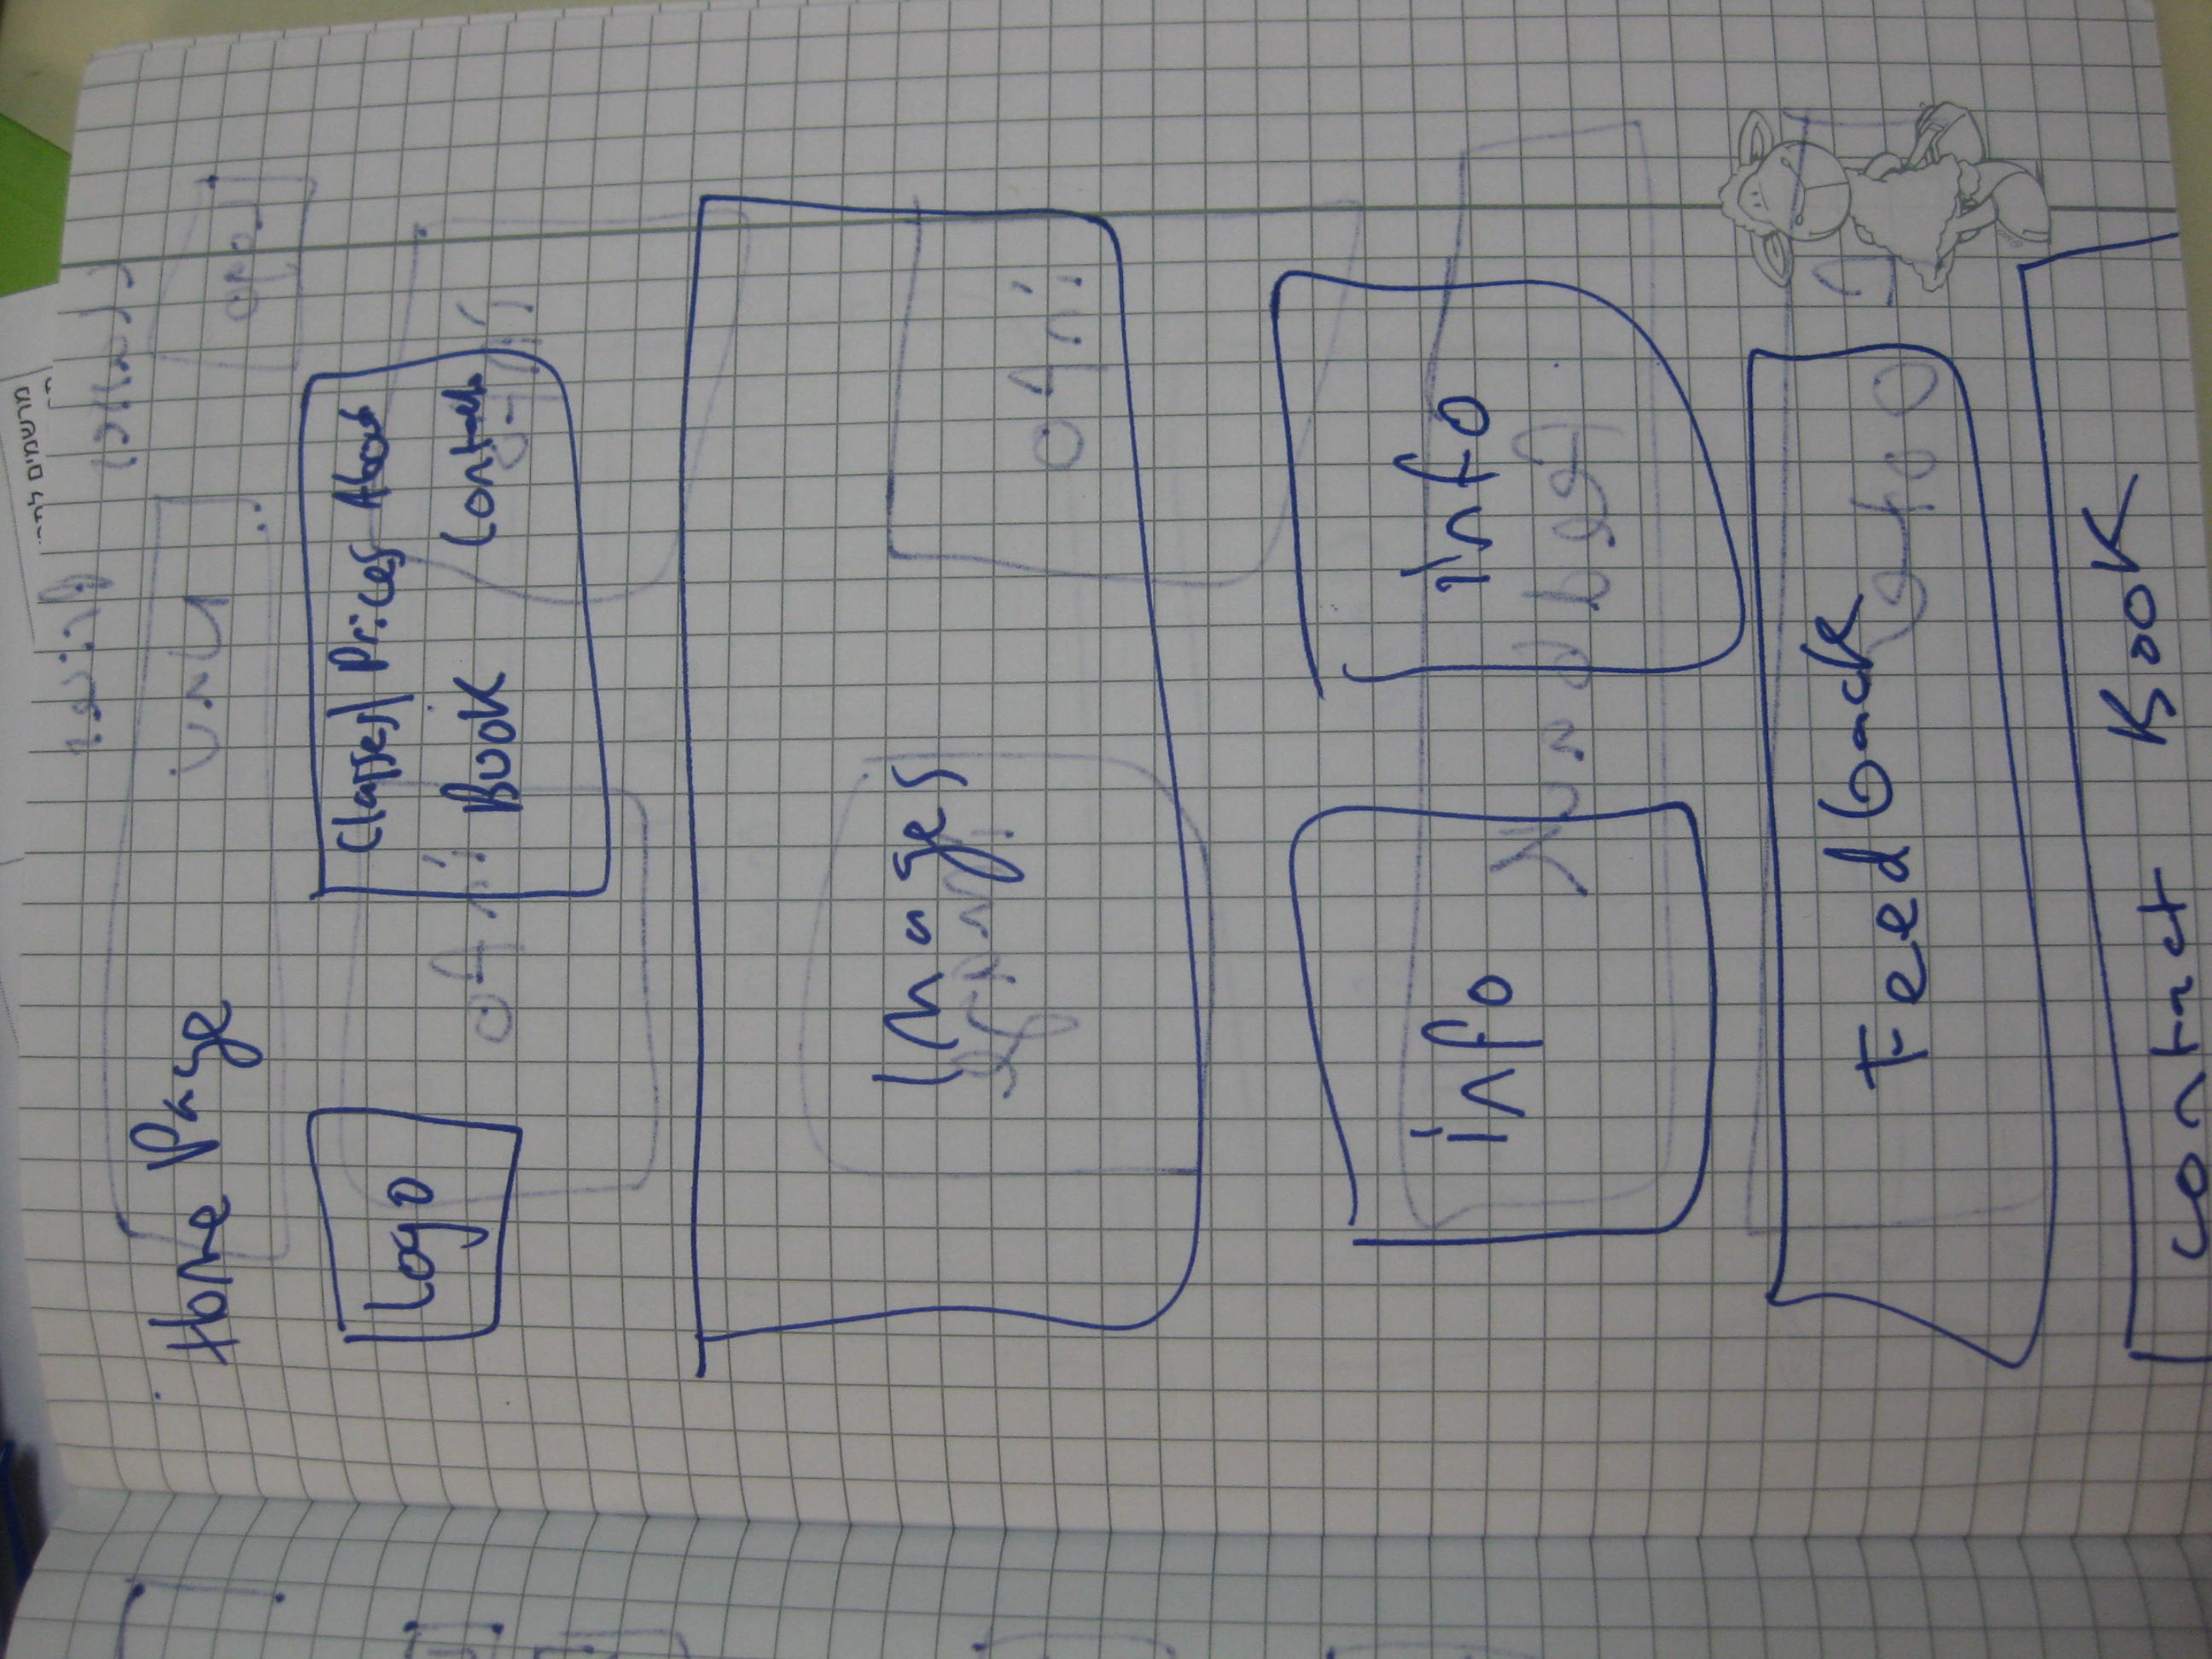 Home Page
Logo
Classes| Prices About
Book Contact
Images
info info
Feedback
contact Book